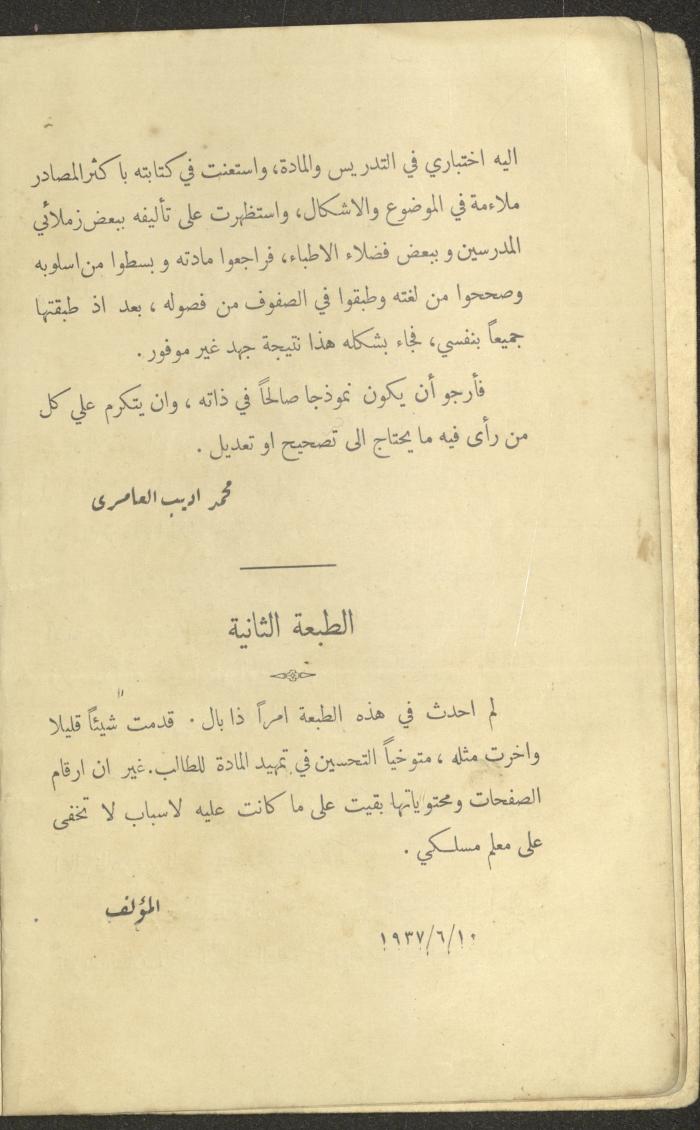 اليه اختباري في التدريس والمادة، واستعنت في كتابته باكثر المصادر
ملاءمة في الموضوع والاشكال، واستظهرت على تأليفه ببعض زملائي
المدرسين وببعض فضلاء الاطباء، فراجعوا مادته وبسطوا من اسلوبه
وصححوا من لغته وطبقوا في الصفوف من فصوله، بعد اذ طبقتها
جميعاً بنفسي، فجاء بشكله هذا نتيجة جهد غير موفور.
فأرجو أن يكون نموذجا صالحاً في ذاته، وان يتكرم علي كل
من رأى فيه ما يحتاج الى تصحيح او تعديل.
محمد اديب العامرى
الطبعة الثانية
لم احدث في هذه الطبعة امراً ذا بال. قدمت شيئاً قليلا
واخرت مثله، متوخياً التحسين في تمهيد المادة للطالب. غير ان ارقام
الصفحات ومحتوياتها بقيت على ما كانت عليه لاسباب لا تخفى
على معلم مسلكي.
المؤلف
١٩٣٧/٦/١٠